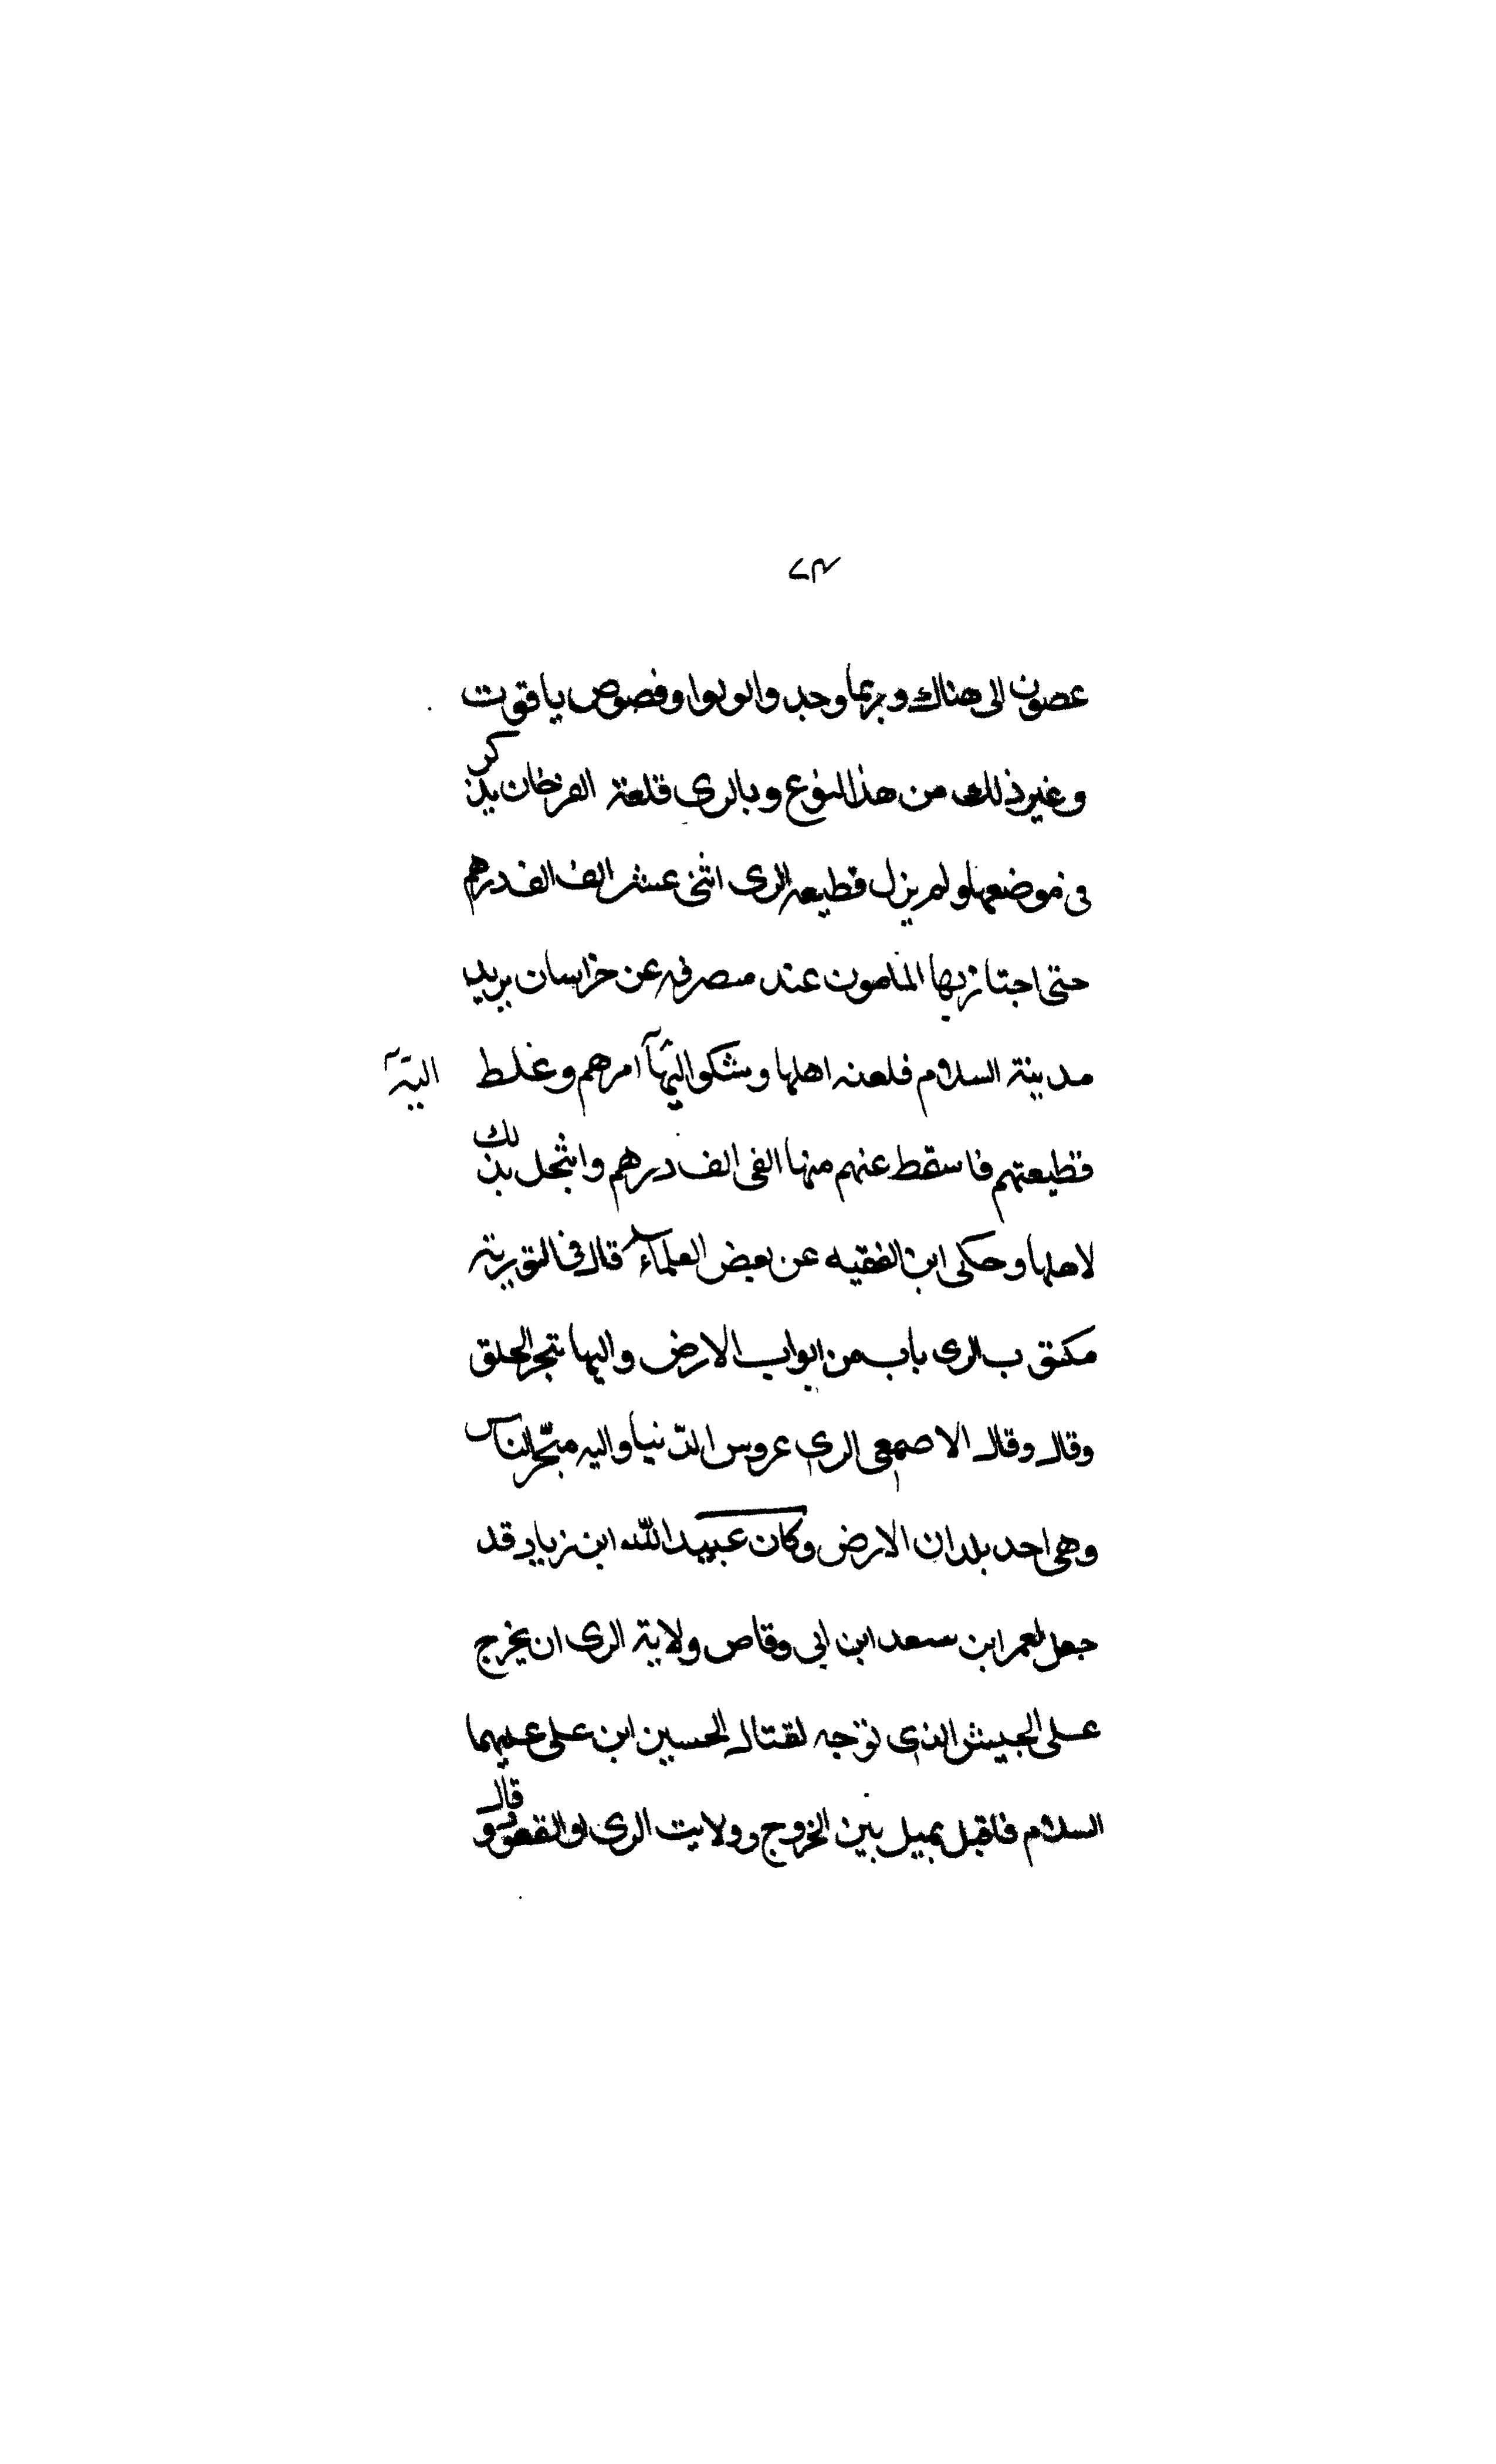 عصون الى هناك وربما وجدوا لولوا وفصوص ياقوت
وغير ذلك من هذا النوع وبالرى قلعة الفرخان يذكر
فى موضعها ولم يزل قطيعه الرى اثنى عشر الف الف درهم
حتى اجتاز بها المامون عند منصرفه عن خراسان يريد
مدينة السلام فلعنه اهلها وشكوا اليها امرهم وغلط
اليه
قطيعتهم فاسقط عنهم منها الفى الف درهم واثجل بذلك
لاهلها وحكى ابن الفقيه عن بعض العلماء قال فى التورية
مكتوب الرى باب من ابواب الارض واليها تتجر الخلق
وقال وقال الاصمعى الرى عروس الدّنيا واليه متّجر الناس
وهى احد بلدان الارض وكان عبيد الله ابن زياد قد
جعل لعمر ابن سعد ابن ابى وقاص ولاية الرى ان يخرج
على الجيش الذى توّجه لقتال الحسين ابن على عليهما
السلام فاقبل يميل بين الخروج وولايت الرى والقعود وقال